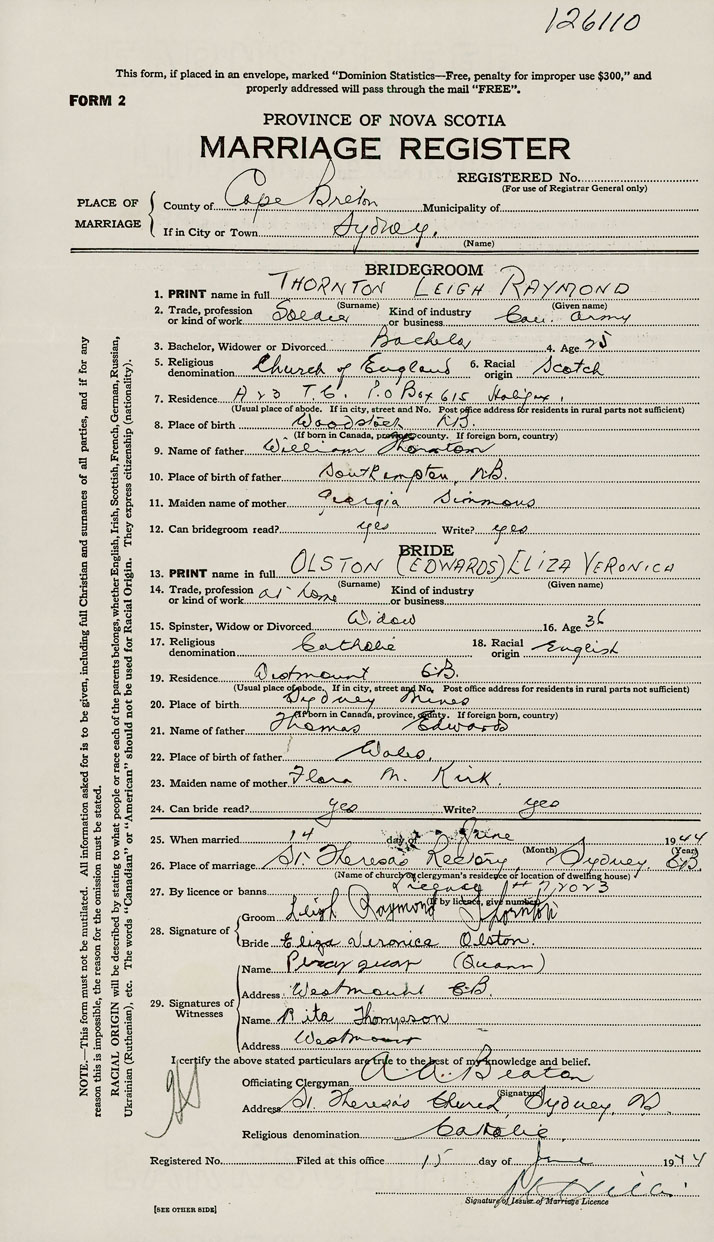 126110
This form, if placed in an envelope, marked "Dominion Statistics—Free, penalty for improper use $300," and
properly addressed will pass through the mail "FREE".
FORM 2
PROVINCE OF NOVA SCOTIA
MARRIAGE REGISTER
REGISTERED No.
(For use of Registrar General only)
PLACE OF MARRIAGE
County of Cape Breton Municipality of
If in City or Town Sydney.
(Name)
BRIDEGROOM
1. PRINT name in full THORNTON LEIGH RAYMOND
(Surname) (Given name)
2. Trade, profession or kind of work Soldier Kind of industry or business Can. Army
3. Bachelor, Widower or Divorced Bachelor 4. Age 25
5. Religious denomination Church of England 6. Racial origin Scotch
7. Residence A 23 T.C. P.O Box 615 Halifax,
(Usual place of abode. If in city, street and No. Post office address for residents in rural parts not sufficient)
8. Place of birth Woodstock N.B.
(If born in Canada, province, county. If foreign born, country)
9. Name of father William Thornton
10. Place of birth of father Southampton, N.B.
11. Maiden name of mother Georgia Simmons
12. Can bridegroom read? yes Write? yes
BRIDE
13. PRINT name in full OLSTON (EDWARDS) ELIZA VERONICA
(Surname) (Given name)
14. Trade, profession or kind of work at home Kind of industry or business
15. Spinster, Widow or Divorced Widow 16. Age 36
17. Religious denomination Catholic 18. Racial origin English
19. Residence Westmount C.B.
(Usual place of abode. If in city, street and No. Post office address for residents in rural parts not sufficient)
20. Place of birth Sydney Mines
(If born in Canada, province, county. If foreign born, country)
21. Name of father Thomas Edwards
22. Place of birth of father Wales,
23. Maiden name of mother Flora M. Kirk.
24. Can bride read? yes Write? yes
25. When married 14 day of June 1944
(Month) (Year)
26. Place of marriage St. Theresa's Rectory Sydney, C.B.
(Name of church or clergyman's residence or location of dwelling house)
27. By licence or banns Licence
(If by licence, give number)
28. Signature of
Groom Leigh Raymond Thornton
Bride Eliza Veronica Olston.
29. Signatures of Witnesses
Name Percy (Quann)
Address Westmount C.B.
Name Rita Thompson
Address Westmount
I certify the above stated particulars are true to the best of my knowledge and belief.
Officiating Clergyman A. A. Beaton
(Signature)
Address St. Theresa's Church, Sydney,
Religious denomination Catholic,
Registered No. Filed at this office 15 day of June 1944
Signature of Issuer of Marriage Licence
[SEE OTHER SIDE]
NOTE.—This form must not be mutilated. All information asked for is to be given, including full Christian and surnames of all parties, and if for any
reason this is impossible, the reason for the omission must be stated.
RACIAL ORIGIN will be described by stating to what people or race each of the parents belongs, whether English, Irish, Scottish, French, German, Russian,
Ukrainian (Ruthenian), etc. The words "Canadian" or "American" should not be used for Racial Origin. They express citizenship (nationality).